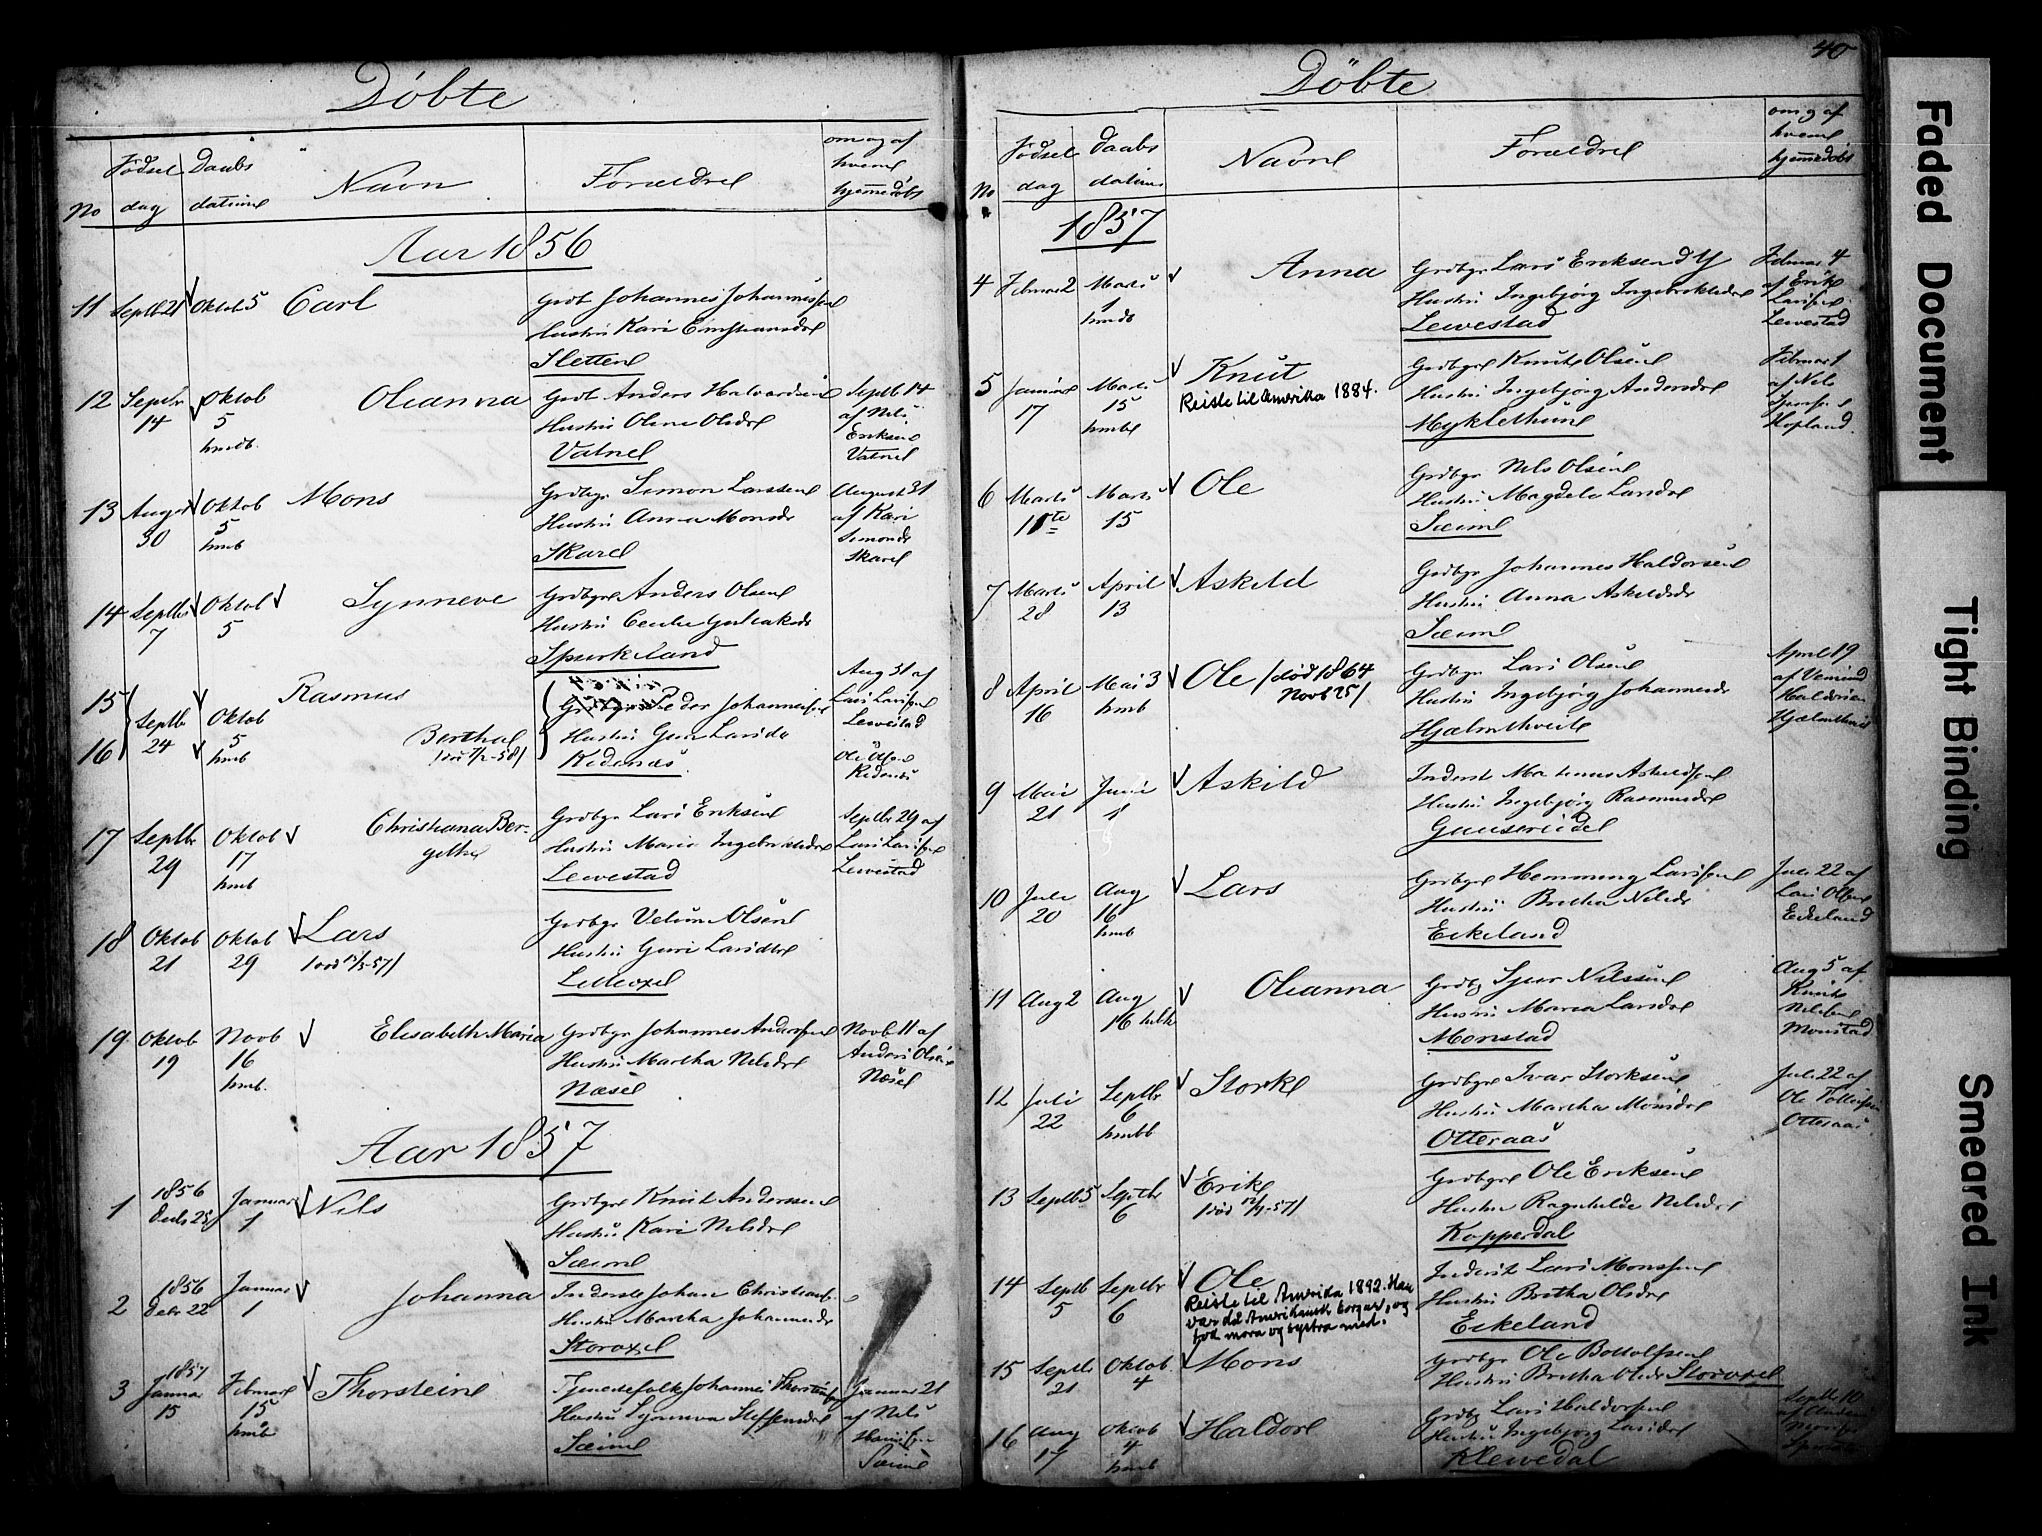 Døbte
No
Fødsel dag
Daabs datum
Navn
Forældre
om og af hvem hjemmedøbt
Aar 1856
11 Septb 21 Oktob 5 Carl
Johannes Johannessen
Hustru Kari
Slettene
12 Septbr 14 Oktob 5 hmdb. Oleanna
Anders Halvardsen
Hustru Olene Olsdr
Vatnel
Septb 14 af Nils Eriksen Vatnel
13 August 30 Oktob 5 hmb Mons
Grdbgr Simon Larssen
Hustru Anna Monsdr
Skarel
August 31 af Kari Simonsdr Skarel
14 Septbr 7 Oktob 5 Synneve
Grdbgr Anders Olsen
Hustru
Spurkeland
15 Rasmus
16 Septbr 24 Oktob 5 hmb Berthel
Peder Johannessen
Hustru Guri Larsdr
Kidenæs
Aug 31 af Lars Larssen Lewestad
17 Septbr 29 Oktob 17 hmb Christiana Ber-
gethe
Grdbgr Lars Eriksen
Hustru Maria Ingebrektsdr
Lewestad
Septbr 29 af Lars Larsen Lewestad
18 Oktob 21 Oktob 29 Lars
Grdbgr Olsen
Hustru Guri Larsdtr
Lilleoxel
19 Oktob 19 Novb 16 hmb. Elisabeth Maria
Grdbgr Johannes Anderssen
Hustru Martha Nilsdr
Næsel
Novb 11 af Anders Olsen Næsel
Aar 1857
1 1856 Decb 28 Januar 1 Nils
Grdbgr Knut Anderssen
Hustru Kari Nilsdr
Sæiml
2 1856 Decbr 22 Januar 1 Johanna
Inderste Johan Christians.
Hustru Martha Johannesdr
Storoxel
3 1857 Januar 15 Februar 15 hmb Thorsteine
Tjenestefolk Johannes Thorsteins.
Hustru Synneva Steffensdr
Sæiml
Januar 21 af Nils Hansen Sæiml
40
Døbte
No
Fødsel dag
Daabs datum
Navne
Forældre
om og af hvem hjemmedøbt
1857
4 Februar 2 Marts 1 hmdb Anna
Grdbgr Lars Eriksen d Y
Hustru Ingebjørg Ingebrektsdr
Lewestad
Februar 4 af Erik Larsen Lewestad
5 Januar 17 Marts 15 hmbl Knut
Reiste til Amerika 1884.
Grdbgr Knut Olsen
Hustru Ingebjørg Andersdr
Myklethun
Februar 1 af Nils Hopland.
6 Marts 11te Marts 15 Ole
Grdbgr Nils Olsen
Hustru Magdela Larsdr
Sæiml
7 Marts 28 April 13 Askild
Grdbgr Johannes Haldorsen
Hustru Anna Askildsdr
Sæiml
8 April 16 Mai 3 hmb Ole /død 1864
Novb 25/
Grdbgr Lars Olsen
Hustru Ingebjørg Johannesdr
Hjelmtveit
April 19 af Haldorsen
9 Mai 21 Juni 1 Askild
Inderst Askildsen
Hustru Ingebjørg Rasmusdr
10 Juli 20 Aug 16 hmb Lars
Grdbgr Hemming Larssen
Hustru Britha Nilsdr
Eikeland
Juli 22 af Lars Olsen Eikeland
11 Aug 2 Aug 16 Oleanna
Grdbg Sjur Nilssen
Hustru Maria Larsdr
Monstad
Aug 5 af Knut Nilssen Monstad
12 Juli 22 Septbr 6 hmbb Storke
Grdbgr Ivar Storksen
Hustru Martha Monsdr
Otteraas
Juli 22 af Ole Otteraas
13 Septb 5 Septbr 6 Erik
Grdbgr Ole Eriksen
Hustru Ragnhilde Nilsdr
Kopperdal
14 Septb 5 Septbr 6 Ole
Reiste til Amerika 1892. Han
var då Amerikansk borgar, og
tok mora og systra med.
Inderst Lars Monssen
Hustru Britha Olsdr
Eikeland
15 Septbr 21 Oktob. 4 Mons
Grdbgr Ole Bottolfsen
Hustru Britha Olsdr Storoxel
16 Aug 17 Oktob 4 hmb Haldore
Grdbg Lars Haldorsen
Hustru Ingebjørg Larsdr
Klewedal
Septb 10
Faded Document
Tight Binding
Smeared Ink